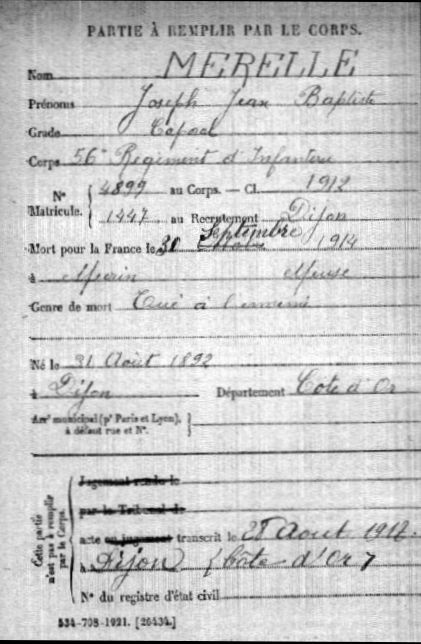 PARTIE À REMPLIR PAR LE CORPS.
Nom MERELLE
Prénoms Joseph Jean Baptiste
Grade Caporal
Corps 56e Régiment d'Infanterie
N° Matricule. 4899 au Corps. — Cl. 1912
1447 au Recrutement Dijon
Mort pour la France le 30 Septembre 1914
à Meuse
Genre de mort Tué à l'ennemi
Né le 31 Août 1892
à Dijon Département Cote d'Or
Arrt municipal (pr Paris et Lyon), à défaut rue et N°.
Cette partie n'est pas à remplir par le Corps.
Jugement rendu le
par le Tribunal de
acte ou jugement transcrit le 28 Aout 1918.
à Dijon (Côte d'Or)
N° du registre d'état civil
534-708-1921. [26434.]